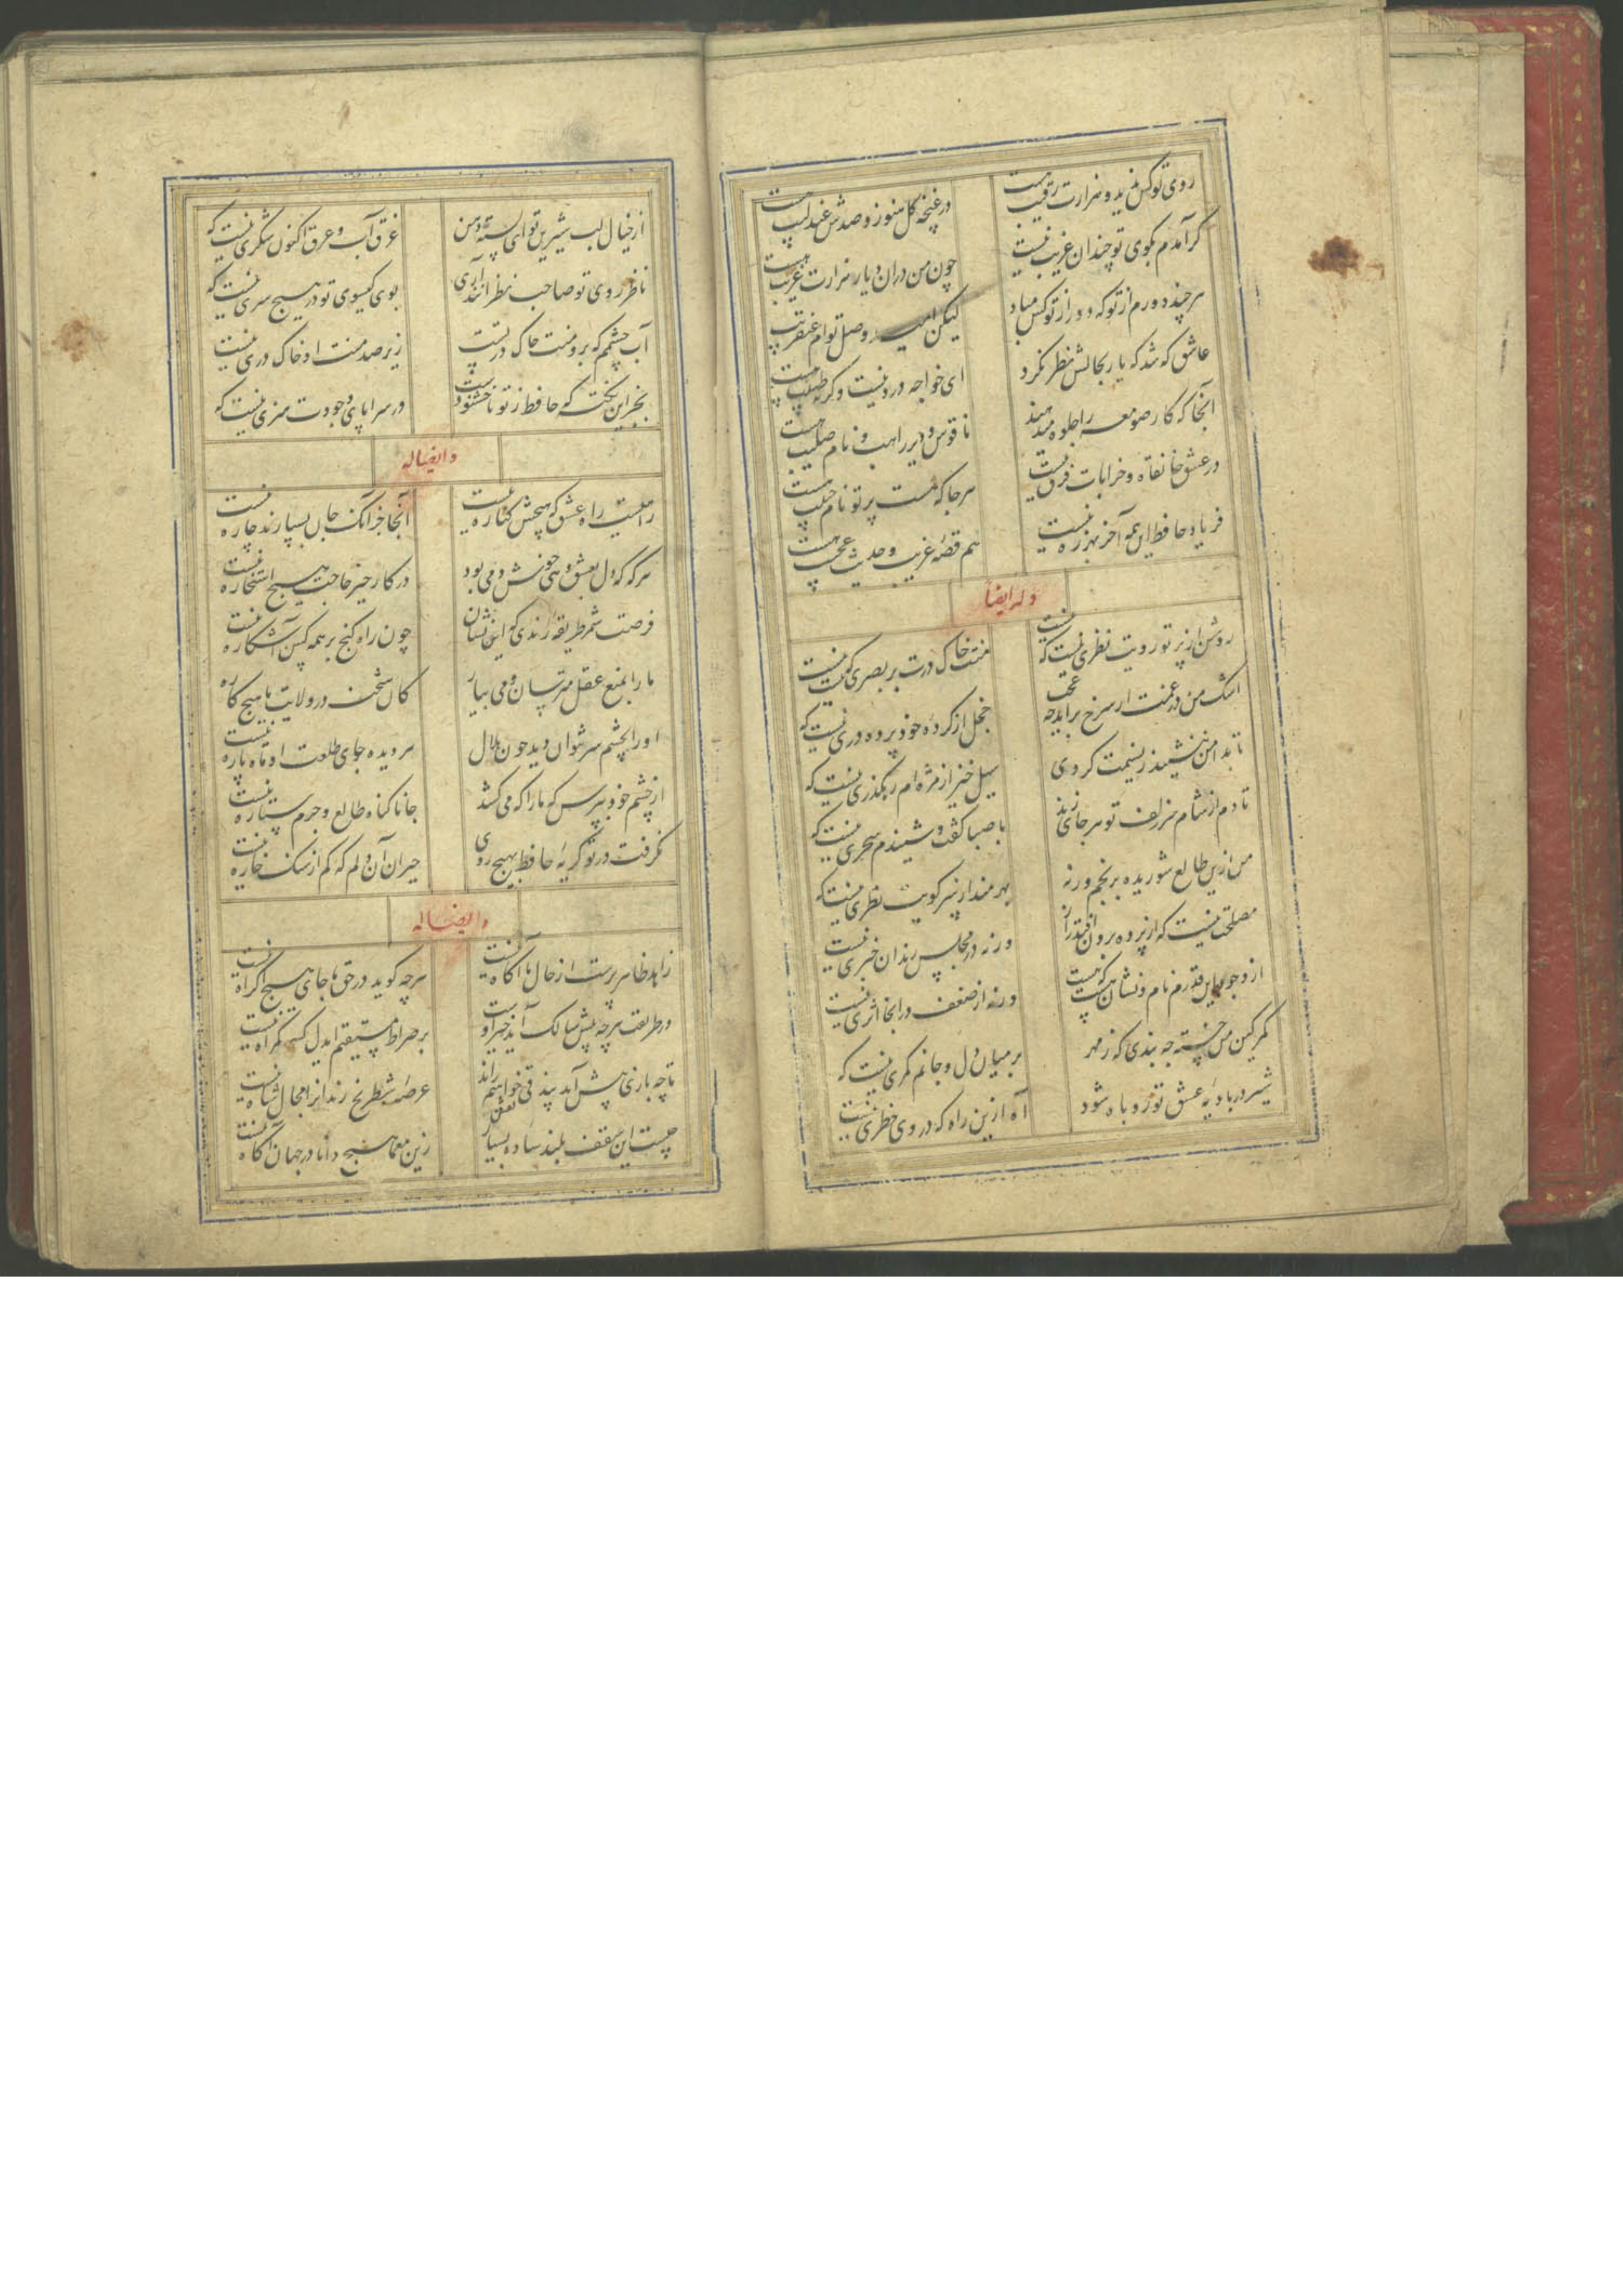 روی تو کس ندید و هزارت رقیب هست
در غنچه کل هنوز و صدش عندلیب هست
کر آمدم بکوی تو چندان غریب نیست
چون من دران دیار هزارت غریب هست
هر چند دورم از تو که دور از تو کس مباد
لیکن امید وصل توام عنقریب
عاشق که شد که یار بحالش نظر نکرد
ای خواجه درد نیست وکرنه طبیب هست
آنجا که کار صومعه را جلوه میدهند
ناقوس و دیر راهب و نام صلیب هست
در عشق خانقاه و خرابات فرق نیست
هر جا که هست پرتو نام حبیب هست
فریاد حافظ این همه آخر بهرزه نیست
هم قصه غریب و حدیث عجیب هست
وله ایضاً
روشن از پرتو رویت نظری نیست که نیست
منت خاک درت بر بصری نیست که نیست
اشک من در غمت ار سرخ برآید چه عجب
خجل از کرده خود پرده دری نیست که
تا بدامن ننشیند ز نسیمت کردی
سیل خیز از مژه ام رهکذری نیست که
تا دم از شام سر زلف تو هر جا نزند
با صبا کفت و شنیدم سحری نیست که
من ازین طالع شوریده برنجم ورنه
بهرمند از سر کویت نظری نیست که
مصلحت نیست که از پرده برون افتد راز
ورنه در مجلس رندان خبری نیست
از وجودم این قدرم نام و نشان هست که هست
ورنه از ضعف در آنجا اثری نیست
کمر کین من خسته چه بندی که ز مهر
بر میان دل و جانم کمری نیست که
شیر در بادیه عشق تو روباه شود
آه ازین راه که در وی خطری نیست
از خیال لب شیرین تو ای پسته دهن
غرق آب و عرق اکنون شکری نیست که
ناظر روی تو صاحب نظرانند آری
بوی کیسوی تو در هیچ سری نیست که
آب چشمم که برو منت خاک در تست
زیر صد منت او خاک دری نیست
بجز این نکته که حافظ ز تو ناخشنودست
در سراپای وجودت هنری نیست که
وایضاله
راهیست راه عشق که هیچش کناره نیست
آنجا جز آنک جان بسپارند چاره نیست
هر که که دل بعشق دهی خوش دمی بود
در کار خیر حاجت هیچ استخاره نیست
فرصت شمر طریقه رندی که این نشان
چون راه کنج بر همه کس آشکاره نیست
ما را بمنع عقل مترسان و می بیار
کان شحنه در ولایت ما هیچ کاره
او را بچشم سر نتوان دید چون هلال
هر دیده جای طلعت او ماه پاره نیست
از چشم خود بپرس که ما را که می کشد
جانا کناه طالع و جرم ستاره نیست
نکرفت در تو کریه حافظ بهیچ روی
حیران آن دلم که کم از سنک خاره نیست
وایضاله
زاهد ظاهر پرست از حال ما آکاه نیست
هر چه کوید در حق ما جای هیچ اکراه نیست
در طریقت هر چه پیش سالک آید خیر اوست
بر صراط مستقیم ایدل کسی کمراه نیست
تا چه بازی پیش آید بیذقی خواهیم راند
عرصه شطرنج رندانرا مجال شاه نیست
چیست این سقف بلند ساده بسیار نقش
زین معما هیچ دانا در جهان آکاه نیست